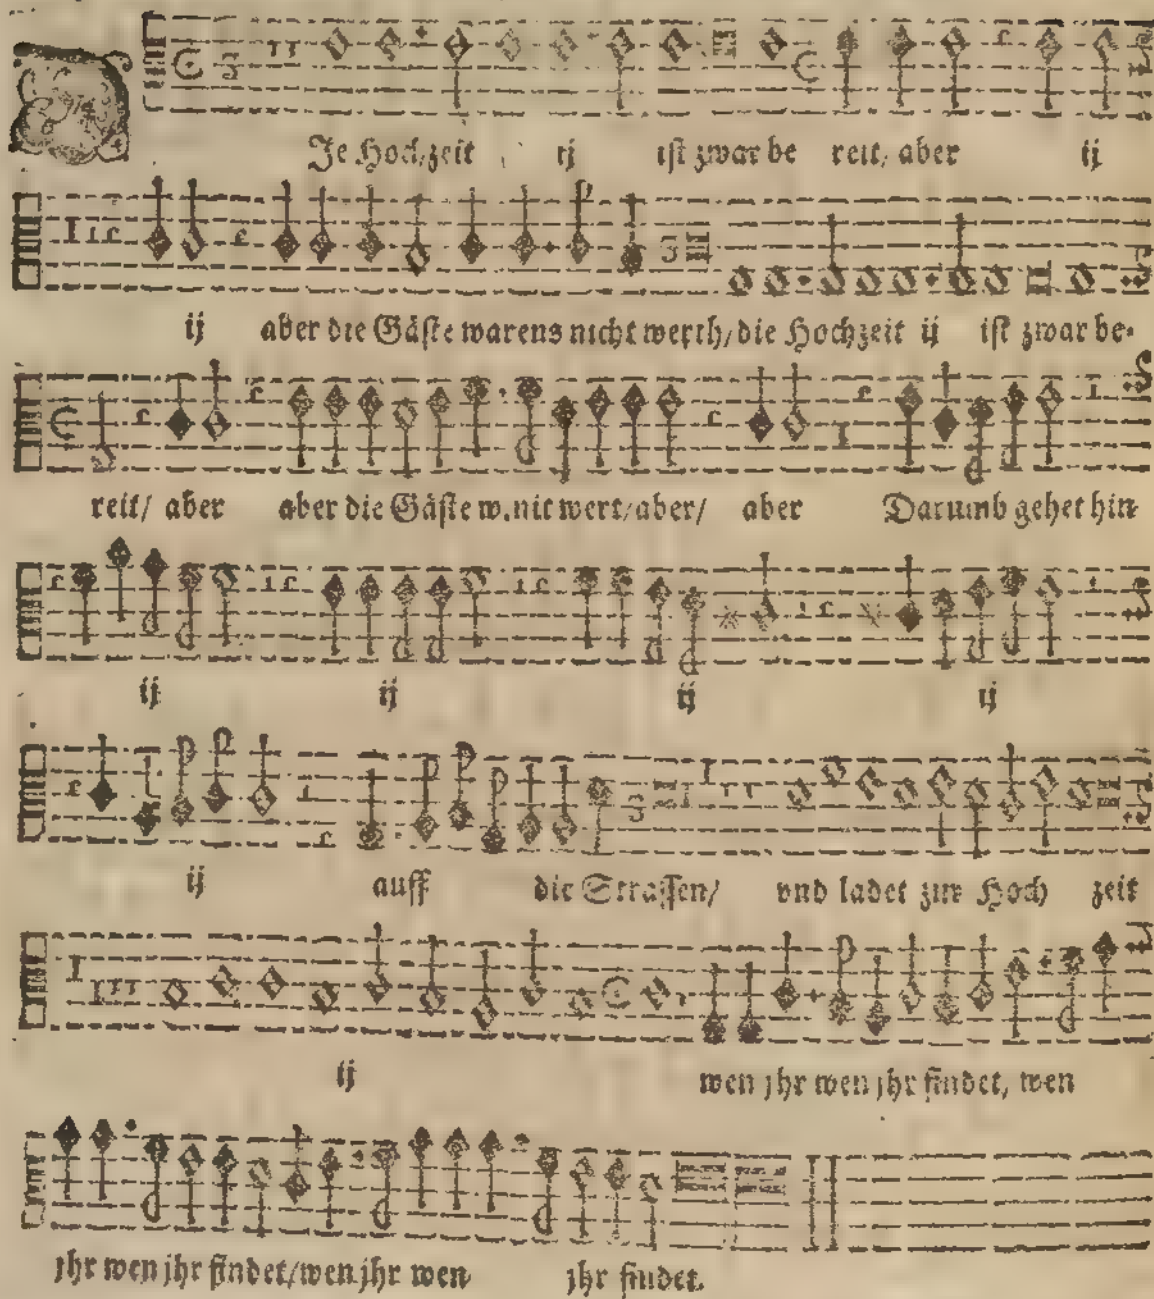 DJe Hochzeit ij ist zwar be reit/ aber ij
ij aber die Gäste warens nicht werth/ die Hochzeit ij ist zwar be-
reit/ aber aber die Gäste w. nit wert/ aber/ aber Darumb gehet hin
ij ij ij ij
ij auff die Strassen/ vnd ladet zur Hoch zeit
ij wen jhr wen jhr findet, wen
jhr wen jhr findet/ wen jhr wen jhr findet.